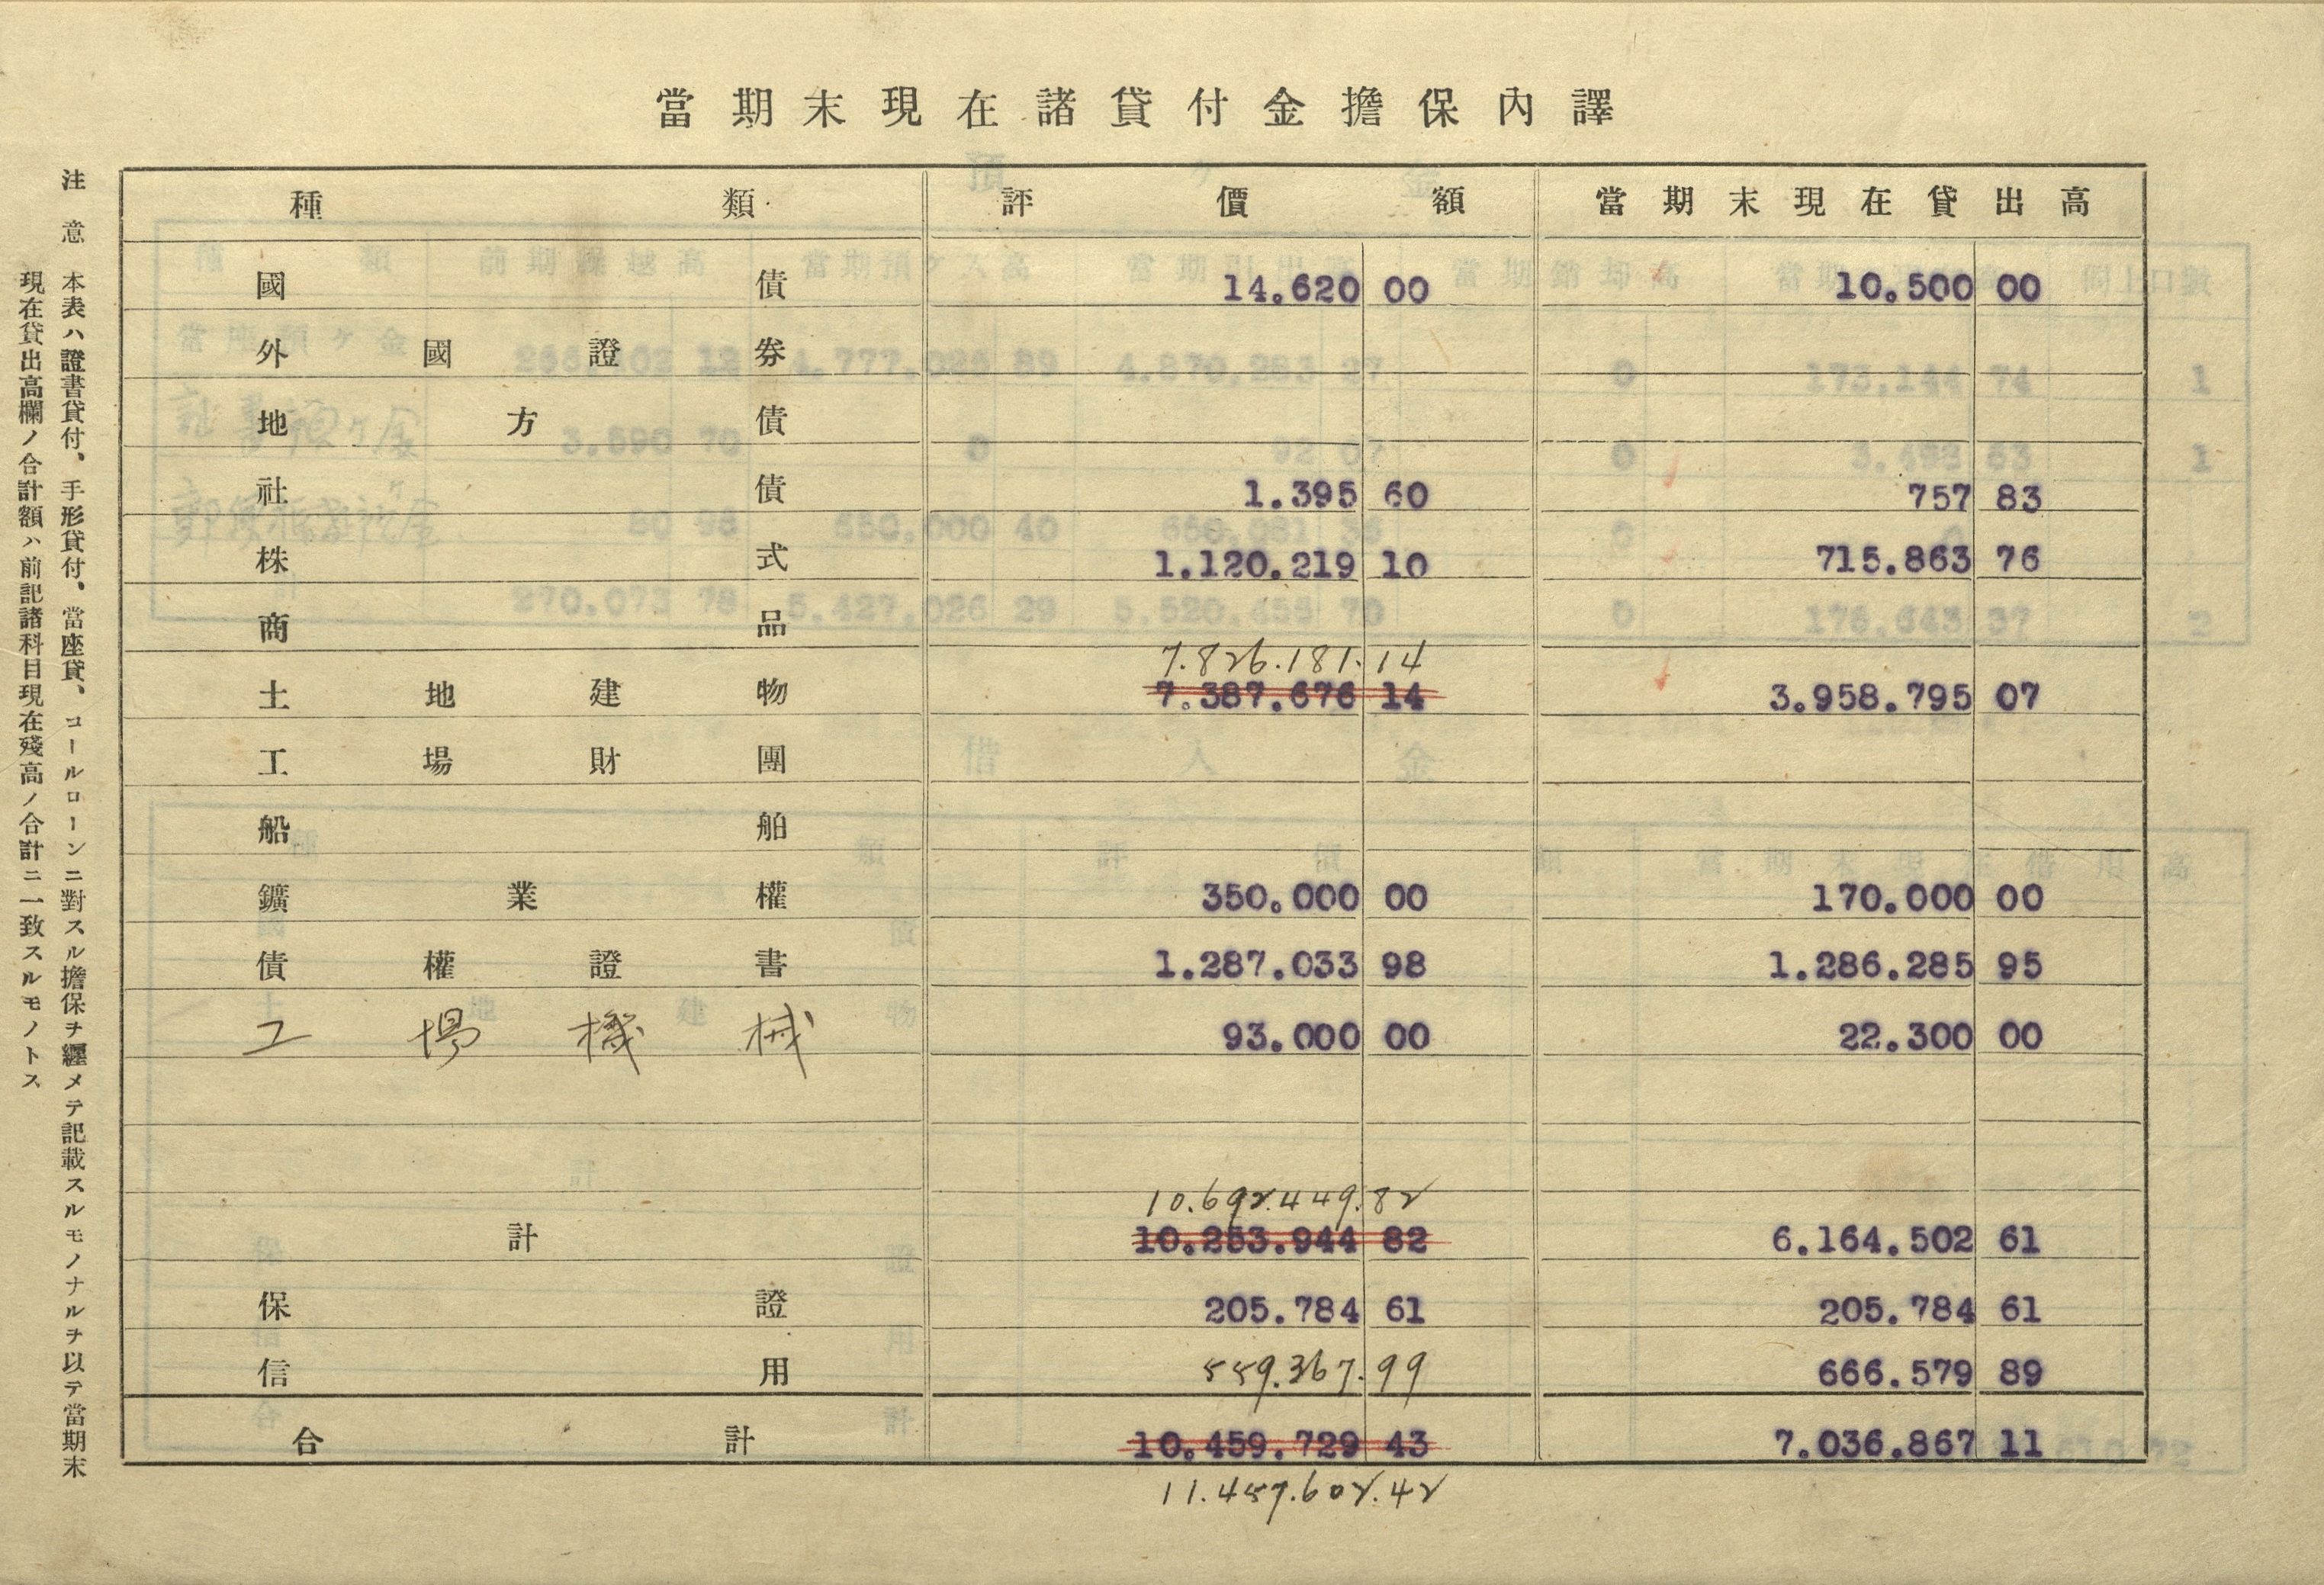 當期末現在諸貸付金擔保內譯
種類 評價額 當期末現在貸出高
國債 14.620 00 10.500 00
外國證券
地方債
社債 1.395 60 757 83
株式 1.120.219 10 715.863 76
商品
7.826.181.14
土地建物 7.387.676 14 3.958.795 07
工場財團
船舶
鑛業權 350.000 00 170.000 00
債權證書 1.287.033 98 1.286.285 95
工場機械 93.000 00 22.300 00
10.692.449.82
計 10.253.944 82 6.164.502 61
保證 205.784 61 205.784 61
信用 559.367.99 666.579 89
合計 10.459.729 43 7.036.867 11
11.457.602.42
注意 本表ハ證書貸付、手形貸付、當座貸、コールローンニ對スル擔保ヲ纒メテ記載スルモノナルヲ以テ當期末
現在貸出高欄ノ合計額ハ前記諸科目現在殘高ノ合計ニ一致スルモノトス